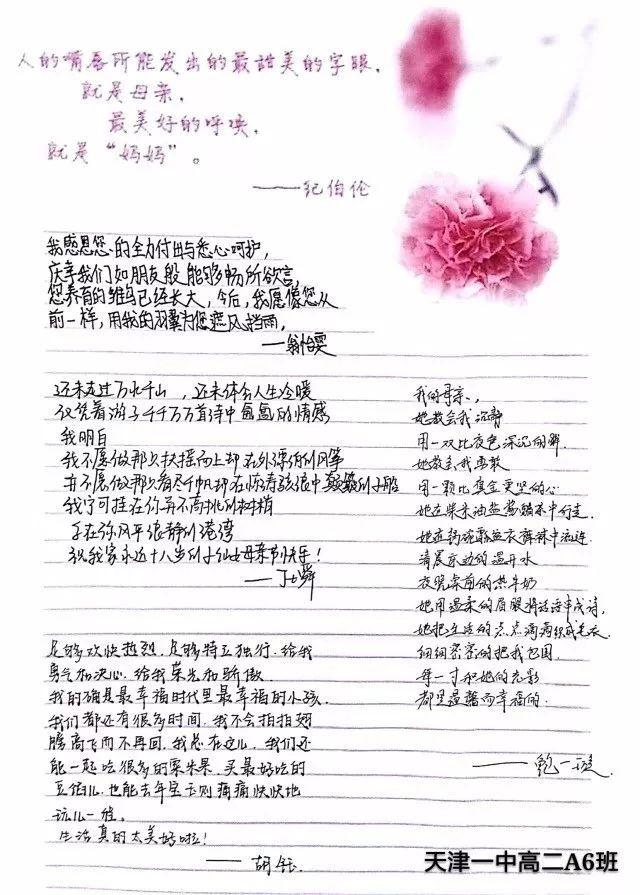 人的嘴唇所能发出的最甜美的字眼,
就是母亲,
最美好的呼唤,
就是“妈妈”。
——纪伯伦
我感恩您的全力付出与悉心呵护,
庆幸我们如朋友般能够畅所欲言,
您养育的雏鸟已经长大,今后,我愿像您从
前一样,用我的羽翼为您遮风挡雨。
——翁怡雯
还未走过万水千山,还未体会人生冷暖
仅凭着游子千千万万首诗中的情感
我明白
我不愿做那只扶摇而上却在外漂泊的风筝
并不愿做那只看尽千帆却在惊涛骇浪中颠簸的小船
我宁可挂在你再不高挑的树梢
在你风平浪静的港湾
祝我家永远十八岁的小仙女母亲节快乐!
我的母亲,
她教会我沉静
用一双比夜色深沉的眸
她教会我勇敢
用一颗比真金更坚的心
她在柴米油盐酱醋茶中行走,
她在锅碗瓢盆衣裤袜中流连
清晨床边的温开水
夜晚桌前的热牛奶
她用温柔的眉眼将话语串成诗,
她把生活的点点滴滴织成毛衣
细细密密的把我包围
每一寸和她的光彩
都是温馨而幸福的
——鲍一璇
足够欢快热烈,足够特立独行,给我
勇气和决心,给我荣光和骄傲
我的确是最幸福时代里最幸福的小孩
我们都还有很多时间,我不会拍拍翅
膀高飞而不再回,我总在这儿,我们还
能一起吃很多的栗米果,买最好吃的
豆馅儿,也能去年宝玉则痛痛快快地
玩儿一程。
生活真的太美好啦!
——胡钰
天津一中高二A6班